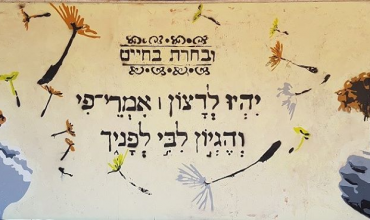 ובחרת בחיים
יִהְיוּ לְרָצוֹן ׀ אִמְרֵי־פִי
וְהֶגְיוֹן לִבִּי לְפָנֶיךָ